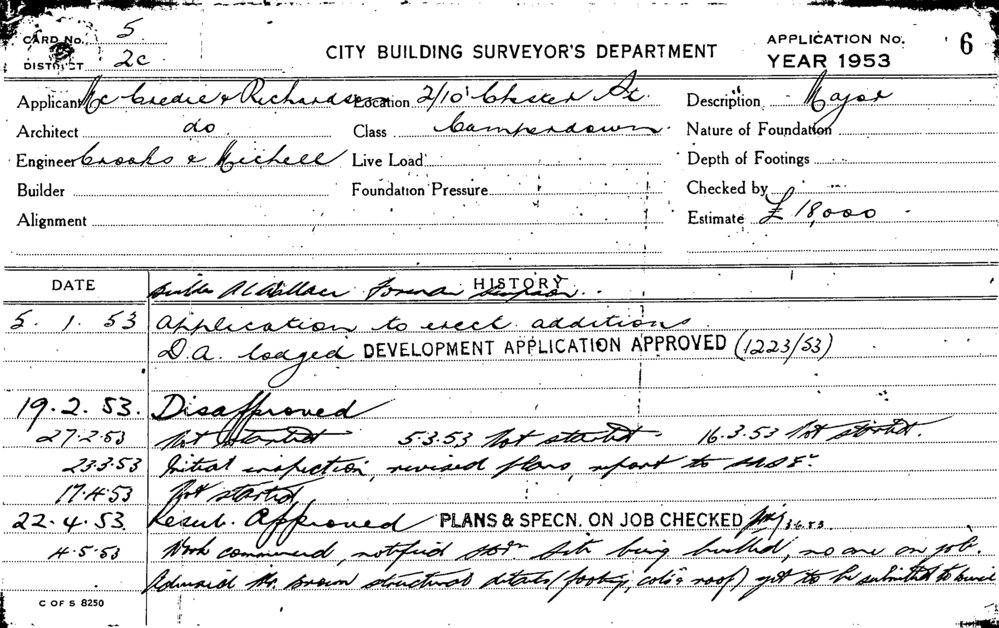 CARD No. 5
DISTRICT 2c
CITY BUILDING SURVEYOR'S DEPARTMENT
APPLICATION No. 6
YEAR 1953
Applicant Mc Credie & Richardson Location 2/10 Chester St. Description Major
Architect do Class Camperdown Nature of Foundation
Engineer Crooks & Michell Live Load Depth of Footings
Builder Foundation Pressure Checked by
Alignment Estimate £18,000
DATE HISTORY
Builder A Wallace Foreman Simpson
5. 1. 53 Application to erect additions
D.A. lodged DEVELOPMENT APPLICATION APPROVED (1223/53)
19. 2. 53. Disapproved
27-2-53 Not started 5.3.53 Not started 16.3.53 Not started.
23.3.53 Initial inspection, revised plans, report to
17.4.53 Not started
22. 4. 53. Resub. Approved PLANS & SPECN. ON JOB CHECKED 3.6.53
4.5.53 Work commenced, notified Site being levelled, no one on job.
Advised Mr. Brown structural details (footing, cols & roof) yet to be submitted to
C OF S 8250